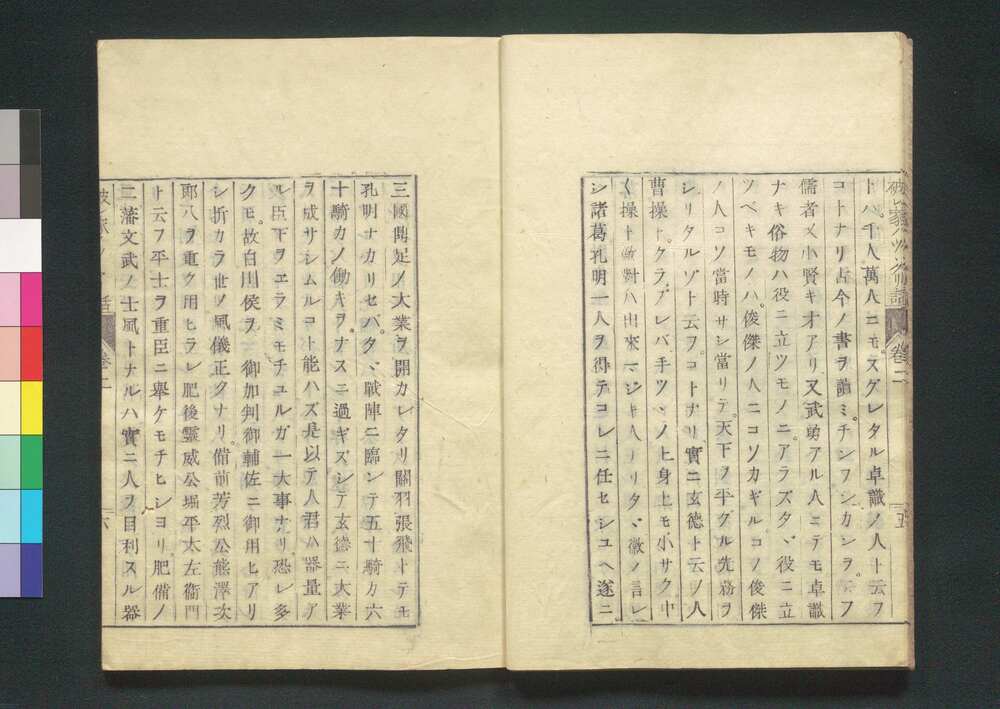 トハ。千人萬人ニモスグレタル卓識ノ人ト云フ
コトナリ古今ノ書ヲ讀ミ。チンフンカンヲ。云フ
儒者又小賢キオアリ又武勇アル人ニテモ卓識
ナキ俗物ハ役ニ立ツモノニ。アラズタヾ役ニ立
ツベキモノハ。俊傑ノ人ニコソカギルコノ俊傑
ノ人コソ當時サシ當リテ。天下ヲ平グル先務ヲ
シリタルゾト云フ。コトナリ。實ニ玄徳ト云フ人
曹操ト。クラブレバ手ツヽノ上身上モ小サク中
く操ト敵對ハ出來マジキ人ナリタヾ徽ノ言レ
シ諸葛孔明一人ヲ得テコレニ任セシユヘ遂ニ
卷二
五
三國鼎足ノ大業ヲ開カレタリ關羽張飛トテモ
孔明ナカリセバ。タヾ戰陣ニ臨ンテ五十騎カ六
十騎カノ働キヲ。ナスニ過ギズシテ玄徳ニ大業
ヲ成サシムルコト能ハズ是以テ人君ハ器量ア
ル臣下ヲエラミモチユルガ一大事ナリ恐レ多
クモ。故白川侯ヲ 御加判御輔佐ニ御用ヒアリ
シ折カラ世ノ風儀正クナリ。備前芳烈公熊澤次
郎八ヲ重ク用ヒラレ肥後靈感公堀平太左衛門
ト云フ平士ヲ重臣ニ擧ケモチヒシヨリ。肥備ノ
二藩文武ノ士風トナルハ實ニ人ヲ目利スル器
卷二
六